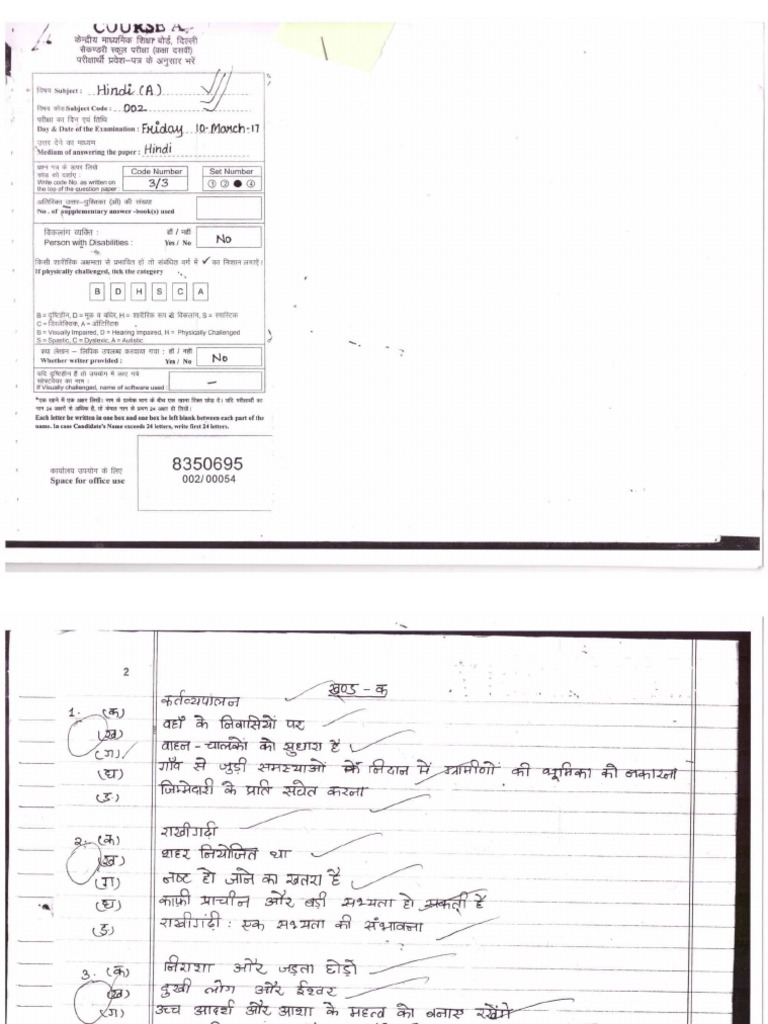 COURSE A
केन्द्रीय माध्यमिक शिक्षा बोर्ड, दिल्ली
सैकण्डरी स्कूल परीक्षा (कक्षा दसवीं)
परीक्षार्थी प्रवेश-पत्र के अनुसार भरें
विषय Subject : Hindi (A)
विषय कोड Subject Code : 002
परीक्षा का दिन एवं तिथि
Day & Date of the Examination : Friday 10-March-17
उत्तर देने का माध्यम
Medium of answering the paper : Hindi
प्रश्न पत्र के ऊपर लिखे
कोड को दर्शाए :
Write code No. as written on
the top of the question paper :
Code Number
3/3
Set Number
① ② ● ④
अतिरिक्त उत्तर-पुस्तिका (ओं) की संख्या
No. of supplementary answer -book(s) used
विकलांग व्यक्ति : हाँ / नहीं
Person with Disabilities : Yes / No No
किसी शारीरिक अक्षमता से प्रभावित हो तो संबंधित वर्ग में ✓ का निशान लगाएँ।
If physically challenged, tick the category
B D H S C A
B = दृष्टिहीन, D = मूक व बधिर, H = शारीरिक रूप से विकलांग, S = स्पास्टिक
C = डिस्लेक्सिक, A = ऑटिस्टिक
B = Visually Impaired, D = Hearing Impaired, H = Physically Challenged
S = Spastic, C = Dyslexic, A = Autistic
क्या लेखन - लिपिक उपलब्ध करवाया गया : हाँ / नहीं
Whether writer provided : Yes / No No
यदि दृष्टिहीन हैं तो उपयोग में लाए गये
सोफ्टवेयर का नाम :
If Visually challenged, name of software used : –
*एक खाने में एक अक्षर लिखें। नाम के प्रत्येक भाग के बीच एक खाना रिक्त छोड़ दें। यदि परीक्षार्थी का
नाम 24 अक्षरों से अधिक है, तो केवल नाम के प्रथम 24 अक्षर ही लिखें।
Each letter be written in one box and one box be left blank between each part of the
name. In case Candidate's Name exceeds 24 letters, write first 24 letters.
कार्यालय उपयोग के लिए
Space for office use
8350695
002/00054
2
खण्ड - क
1. (क) कर्तव्यपालन
(ख) वहाँ के निवासियों पर
(ग) वाहन-चालकों को सुधारा है
(घ) गाँव से जुड़ी समस्याओं के निदान में ग्रामीणों की भूमिका को नकारना
(ङ) जिम्मेदारी के प्रति सचेत करना
2. (क) राखीगढ़ी
(ख) शहर नियोजित था
(ग) नष्ट हो जाने का खतरा है
(घ) काफ़ी प्राचीन और बड़ी सभ्यता हो सकती है
(ङ) राखीगढ़ी : एक सभ्यता की संभावना
3. (क) निराशा और जड़ता छोड़ो
(ख) दुखी लोग और ईश्वर
(ग) उच्च आदर्श और आशा के महत्व को बनाए रखेंगे